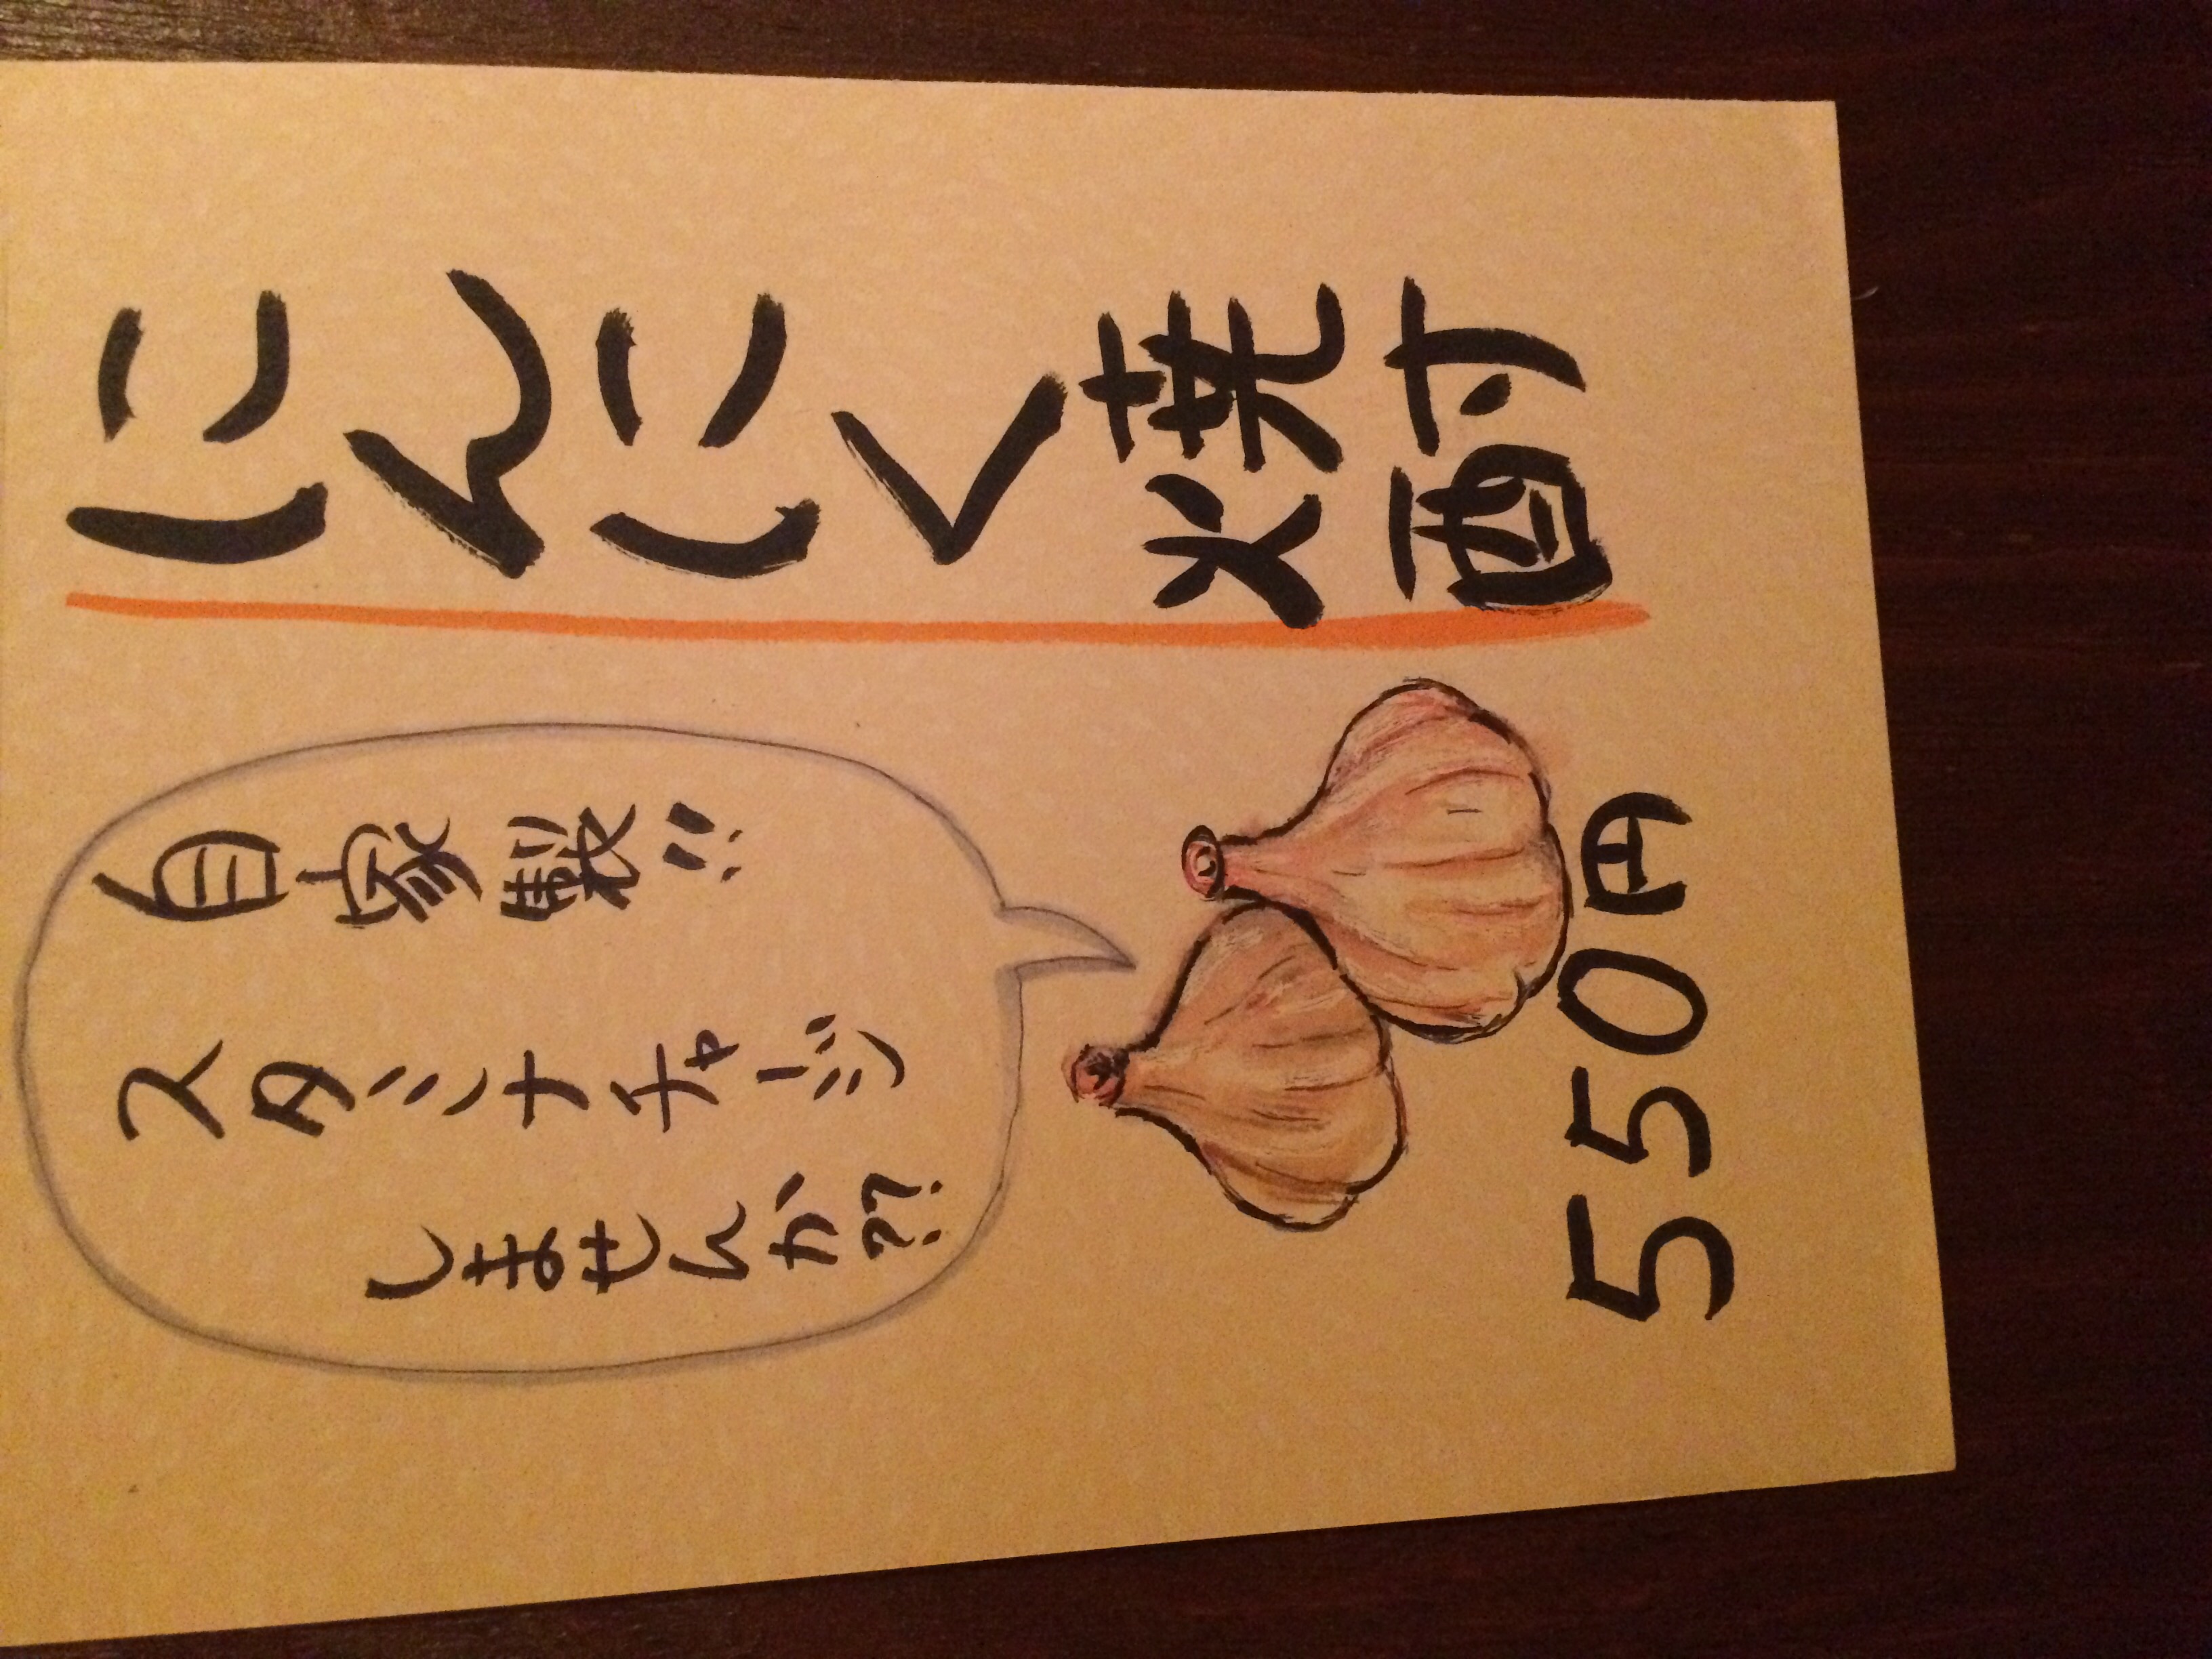 にんにく焼酎
自家製!!
スタミナチャージ
しませんか??
550円